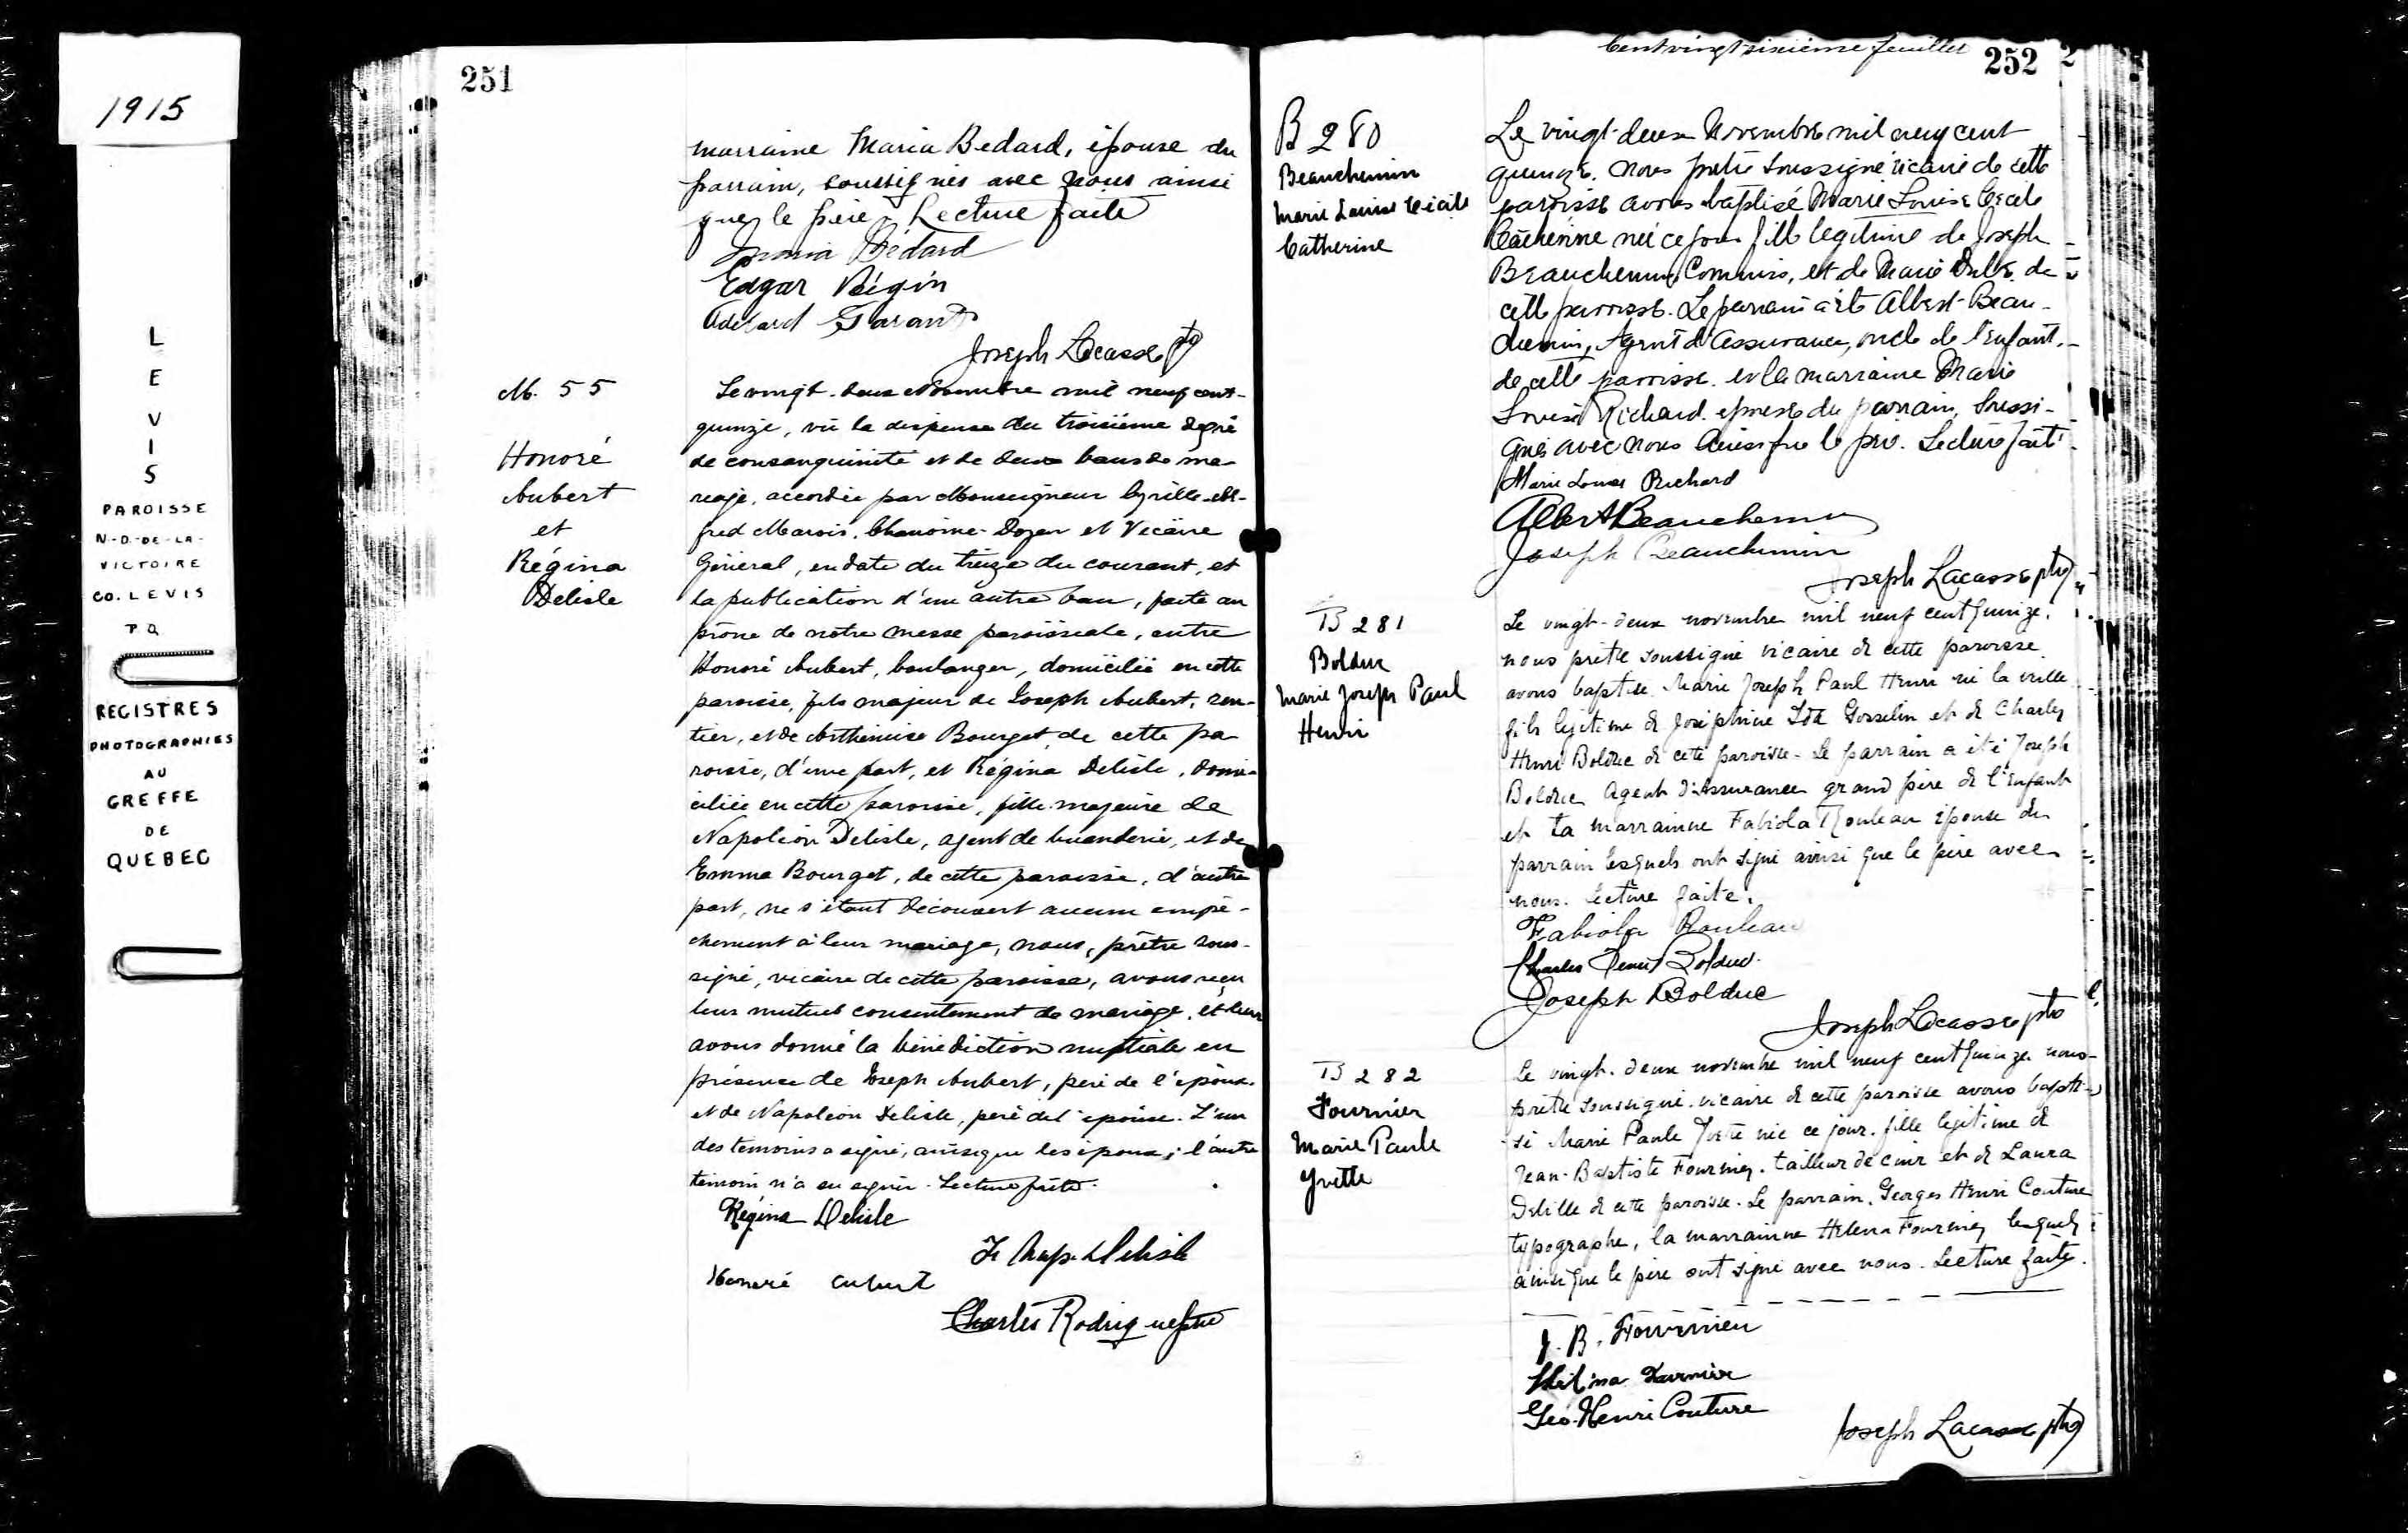 1915
L
E
V
I
S
PAROISSE
N-D-DE-LA-
VICTOIRE
CO. LEVIS
P Q
REGISTRES
PHOTOGRAPHIES
AU
GREFFE
DE
QUEBEC
251
marraine Maria Bedard, épouse du
parrain, soussignés avec nous ainsi
que le père. Lecture faite
Maria Bédard
Edgar Bégin
Adelard Garant
Joseph Lacasse ptre
M. 55
Honoré
Aubert
et
Régina
Delisle
Le vingt-deux Novembre mil neuf cent-
quinze, vu la dispense du troisième degré
de consanguinité et de deux bans de ma-
riage, accordée par Monseigneur Cyrille-Al-
fred Marois, Chanoine-Doyen et Vicaire
Général, en date du treize du courant, et
la publication d'un autre ban, faite au
prône de notre messe paroissiale, entre
Honoré Aubert, boulanger, domicilié en cette
paroisse, fils majeur de Joseph Aubert, ren-
tier, et de Arthémise Bourget, de cette pa-
roisse, d'une part, et Régina Delisle, domi-
ciliée en cette paroisse, fille majeure de
Napoléon Delisle, agent de buanderie, et de
Emma Bourget, de cette paroisse, d'autre
part, ne s'étant découvert aucun empê-
chement à leur mariage, nous, prêtre sous-
signé, vicaire de cette paroisse, avons reçu
leur mutuel consentement de mariage, et leur
avons donné la bénédiction nuptiale en
présence de Joseph Aubert, père de l'époux
et de Napoléon Delisle, père de l'épouse. L'un
des témoins a signé, ainsi que les époux; l'autre
témoin n'a su signer. Lecture faite.
Régina Delisle
Nap. Delisle
Honoré Aubert
Charles Rodrigue ptre
Cent vingt sixième feuillet
252
B 280
Beauchemin
Marie Louise Cécile
Catherine
Le vingt-deux Novembre mil neuf cent
quinze. Nous prêtre soussigné vicaire de cette
paroisse avons baptisé Marie Louise Cécile
Catherine née ce jour fille légitime de Joseph
Beauchemin, Commis, et de Marie de
cette paroisse. Le parrain a été Albert Beau-
chemin, Agent d'assurance, oncle de l'enfant,
de cette paroisse. et la marraine Marie
Louise Richard. épouse du parrain, soussi-
gnés avec nous ainsi que le père. Lecture faite.
Marie Louise Richard
Albert Beauchemin
Joseph Beauchemin
Joseph Lacasse ptre
B 281
Bolduc
Marie Joseph Paul
Henri
Le vingt-deux novembre mil neuf cent quinze.
nous prêtre soussigné vicaire de cette paroisse
avons baptisé Marie Joseph Paul Henri né la veille
fils légitime de Joséphine Ida Gosselin et de Charles
Henri Bolduc de cette paroisse. Le parrain a été Joseph
Bolduc Agent d'Assurance grand père de l'enfant
et la marrainne Fabiola Rouleau épouse du
parrain lesquels ont signé ainsi que le père avec
nous. lecture faite.
Fabiola Rouleau
Charles Henri Bolduc
Joseph Bolduc
Joseph Lacasse ptre
B 282
Fournier
Marie Paule
Yvette
Le vingt-deux novembre mil neuf cent quinze nous
prêtre soussigné vicaire de cette paroisse avons bapti-
sé Marie Paule Yvette née ce jour fille légitime de
Jean-Baptiste Fournier, tailleur de cuir et de Laura
Delille de cette paroisse. Le parrain, Georges Henri Couture
typographe, la marrainne Helena Fournier lesquels
ainsi que le père ont signé avec nous. Lecture faite.
J. B. Fournier
Fournier
Geo-Henri Couture
Joseph Lacasse ptre